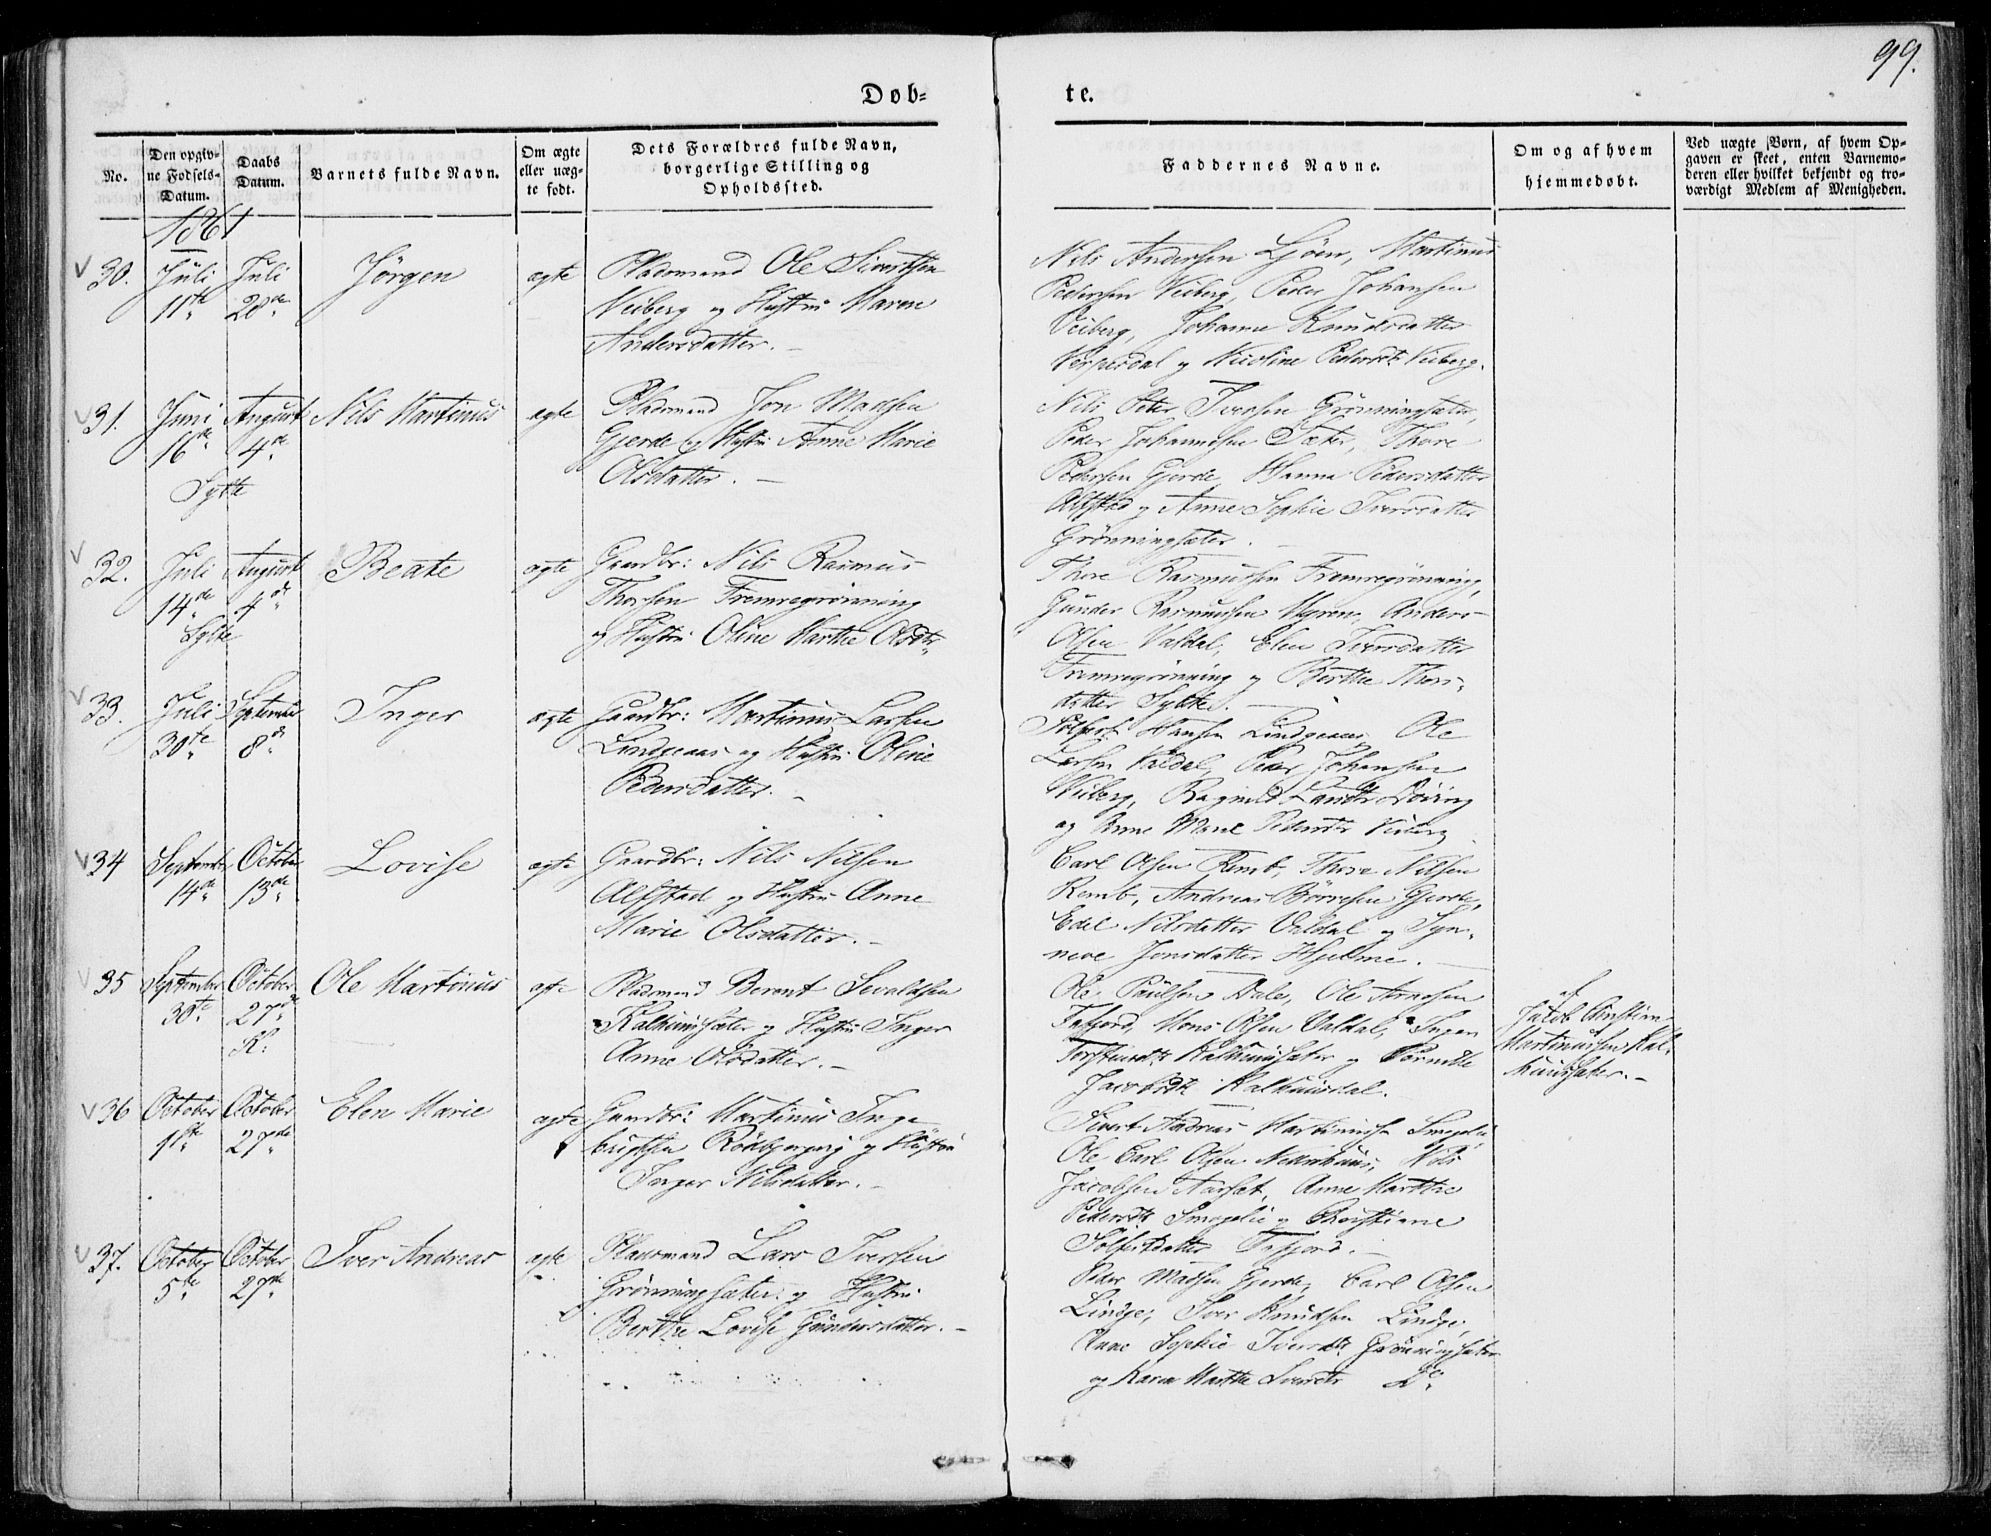 99.
Døb=
te.
No.
Den opgiv-
ne Fødsels-
Datum.
Daabs
Datum.
Barnets fulde Navn.
Om ægte
eller uæg-
te født.
Dets Forældres fulde Navn,
borgerlige Stilling og
Opholdssted.
Faddernes Navne.
Om og af hvem
hjemmedøbt.
Ved uægte Børn, af hvem Op-
gaven er skeet, enten Barnemo-
deren eller hvilket bekjendt og tro-
værdigt Medlem af Menigheden.
1861
30.
Juli
11te
Juli
28de
Jörgen
ægte
Pladsmand Ole Sivertsen
Veiberg og Hustru Maren
Andersdatter. –
Nils Andersen Ljöen, Martinus
Pedersen Veiberg, Peder Johansen
Veiberg, Johanne Knudsdatter
og Nicoline Pedersdt: Veiberg.
31.
Juni
16de
Sylte
August
4de
Nils Martinus
ægte
Pladsmand Jon Madsen
Gjerde og Hustru Anne Marie
Olsdatter. –
Nils Peter Iversen Grönningsæter,
Peder Johannesen Sæter, Thore
Pedersen Gjerde, Hanna Pedersdatter
Alfstad og Anne Sophie Iversdatter
Grönningsæter. –
32.
Juli
14de
Sylte
August
4de
Beate
ægte
Gaardbr: Nils Rasmus
Thorsen Fremregrönning
og Hustru Oline Marthe Olsdtr
Thore Rasmussen Fremregrönning,
Gunder Rasmussen Myren, Anders
Olsen Valdal, Elen Iversdatter
Fremregrönning og Berthe Thors-
datter Sylte. –
33.
Juli
30te
September
8de
Inger
ægte
Gaardbr: Martinus Larsen
Lindgeaas og Hustru Oline
Pedersdatter. –
Sölfest Hansen Lindgeaas, Ole
Larsen Valdal, Peder Johansen
Veiberg, Ragnild Larsdtr Döving
og Anne Marie Pedersdtr Veiberg
34
September
14de
October
13de
Lovise
ægte
Gaardbr: Nils Nilsen
Alfstad og Hustru Anne
Marie Olsdatter. –
Carl Olsen Remb, Thore Nilsen
Remb, Andreas Börresen Gjerde,
Edel Nilsdatter Valdal og Syn-
neve Jonsdatter Hjelme. –
35
September
30te
October
27de
K:
Ole Martinus
ægte
Pladsmand Berent Sevaldsen
Kalhuussæter og Hustru Inger
Anne Olsdatter. –
Ole Paulsen Dale, Ole Arnesen
Tafjord, Mons Olsen Valdal, Inger
Torsteinsdt: Kalhuussæter og Pernille
Jacobsdt: Kalhuusdal.
af
Jacob Christian
Martinussen Kal-
huussæter. –
36
October
1ste
October
27de
Elen Marie
ægte
Gaardbr: Martinus Inge-
brigtsen Rödbjergvig og Hustru
Inger Nilsdatter. –
Sivert Andreas Martinusen Smogelie
Ole Carl Olsen Nedrehuus, Nils
Jacobsen Aarset, Anne Marthe
Pedersdt: Smogelie og Christiane
Sölfestdatter Tafjord. –
37.
October
5te
October
27de
Iver Andreas
ægte
Pladsmand Lars Iversen
Grönningsæter og Hustru
Berthe Lovise Gundersdatter. –
Peder Madsen Gjerde, Carl Olsen
Lindge, Iver Knudsen Lindge,
Anne Sophie Iversdt: Grönningsæter
og Karen Marthe Iversdtr Do.